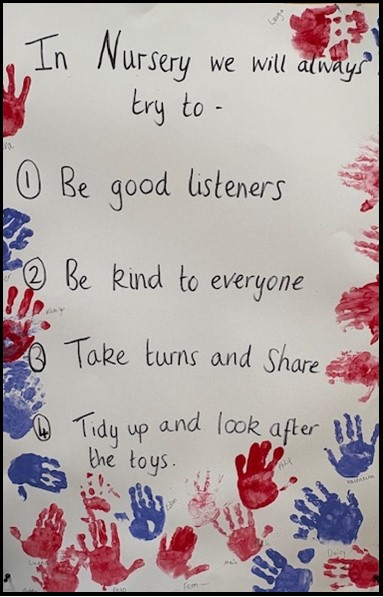 In Nursery we will always
try to -
① Be good listeners
② Be kind to everyone
③ Take turns and share
④ Tidy up and look after
the toys.
Daisy